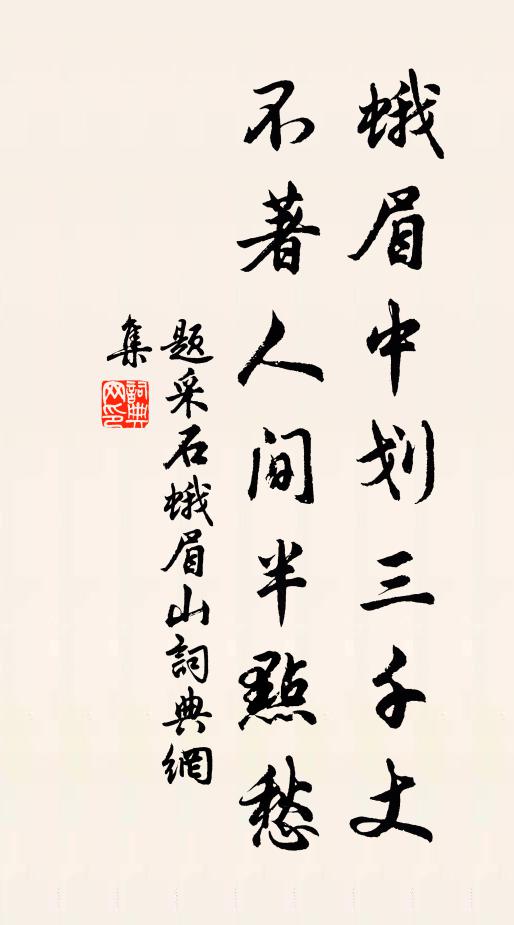 蛾眉中划三千丈
不著人间半點愁
题采石蛾眉山詞典網
集
詞典
网印